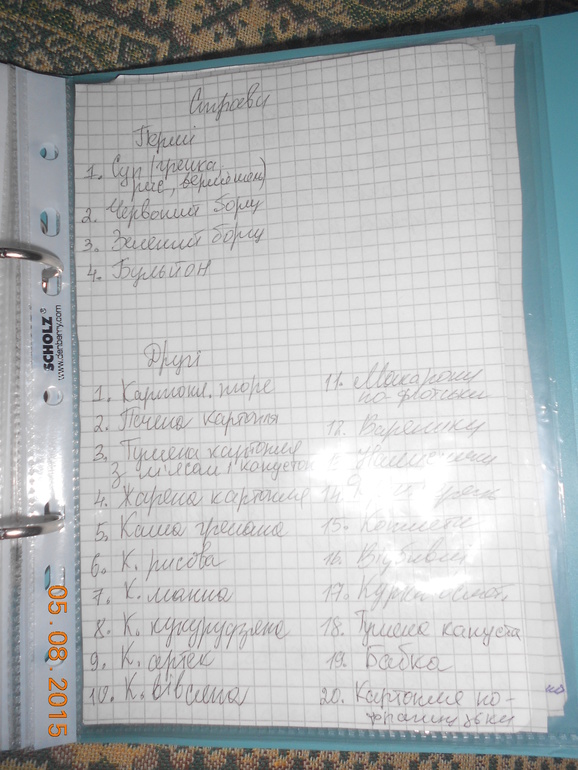 Страви
Перші
1. Суп (гречка,
рис, вермішель)
2. Червоний борщ
3. Зелений борщ
4. Бульйон
Другі
1. Картопл. пюре
2. Печена картопля
3. Тушена картопля
з м'ясом і капустою
4. Жарена картопля
5. Каша гречана
6. К. рисова
7. К. манна
8. К. кукурудзяна
9. К. артек
10. К. вівсяна
11. Макарони
по-флотськи
12. Вареники
13.
14.
15. Котлети
16. Відбивні
17. Курка
18. Тушена капуста
19. Бабка
20. Картопля по-
французьки
SCHOLZ
www.denberry.com
05.08.2015